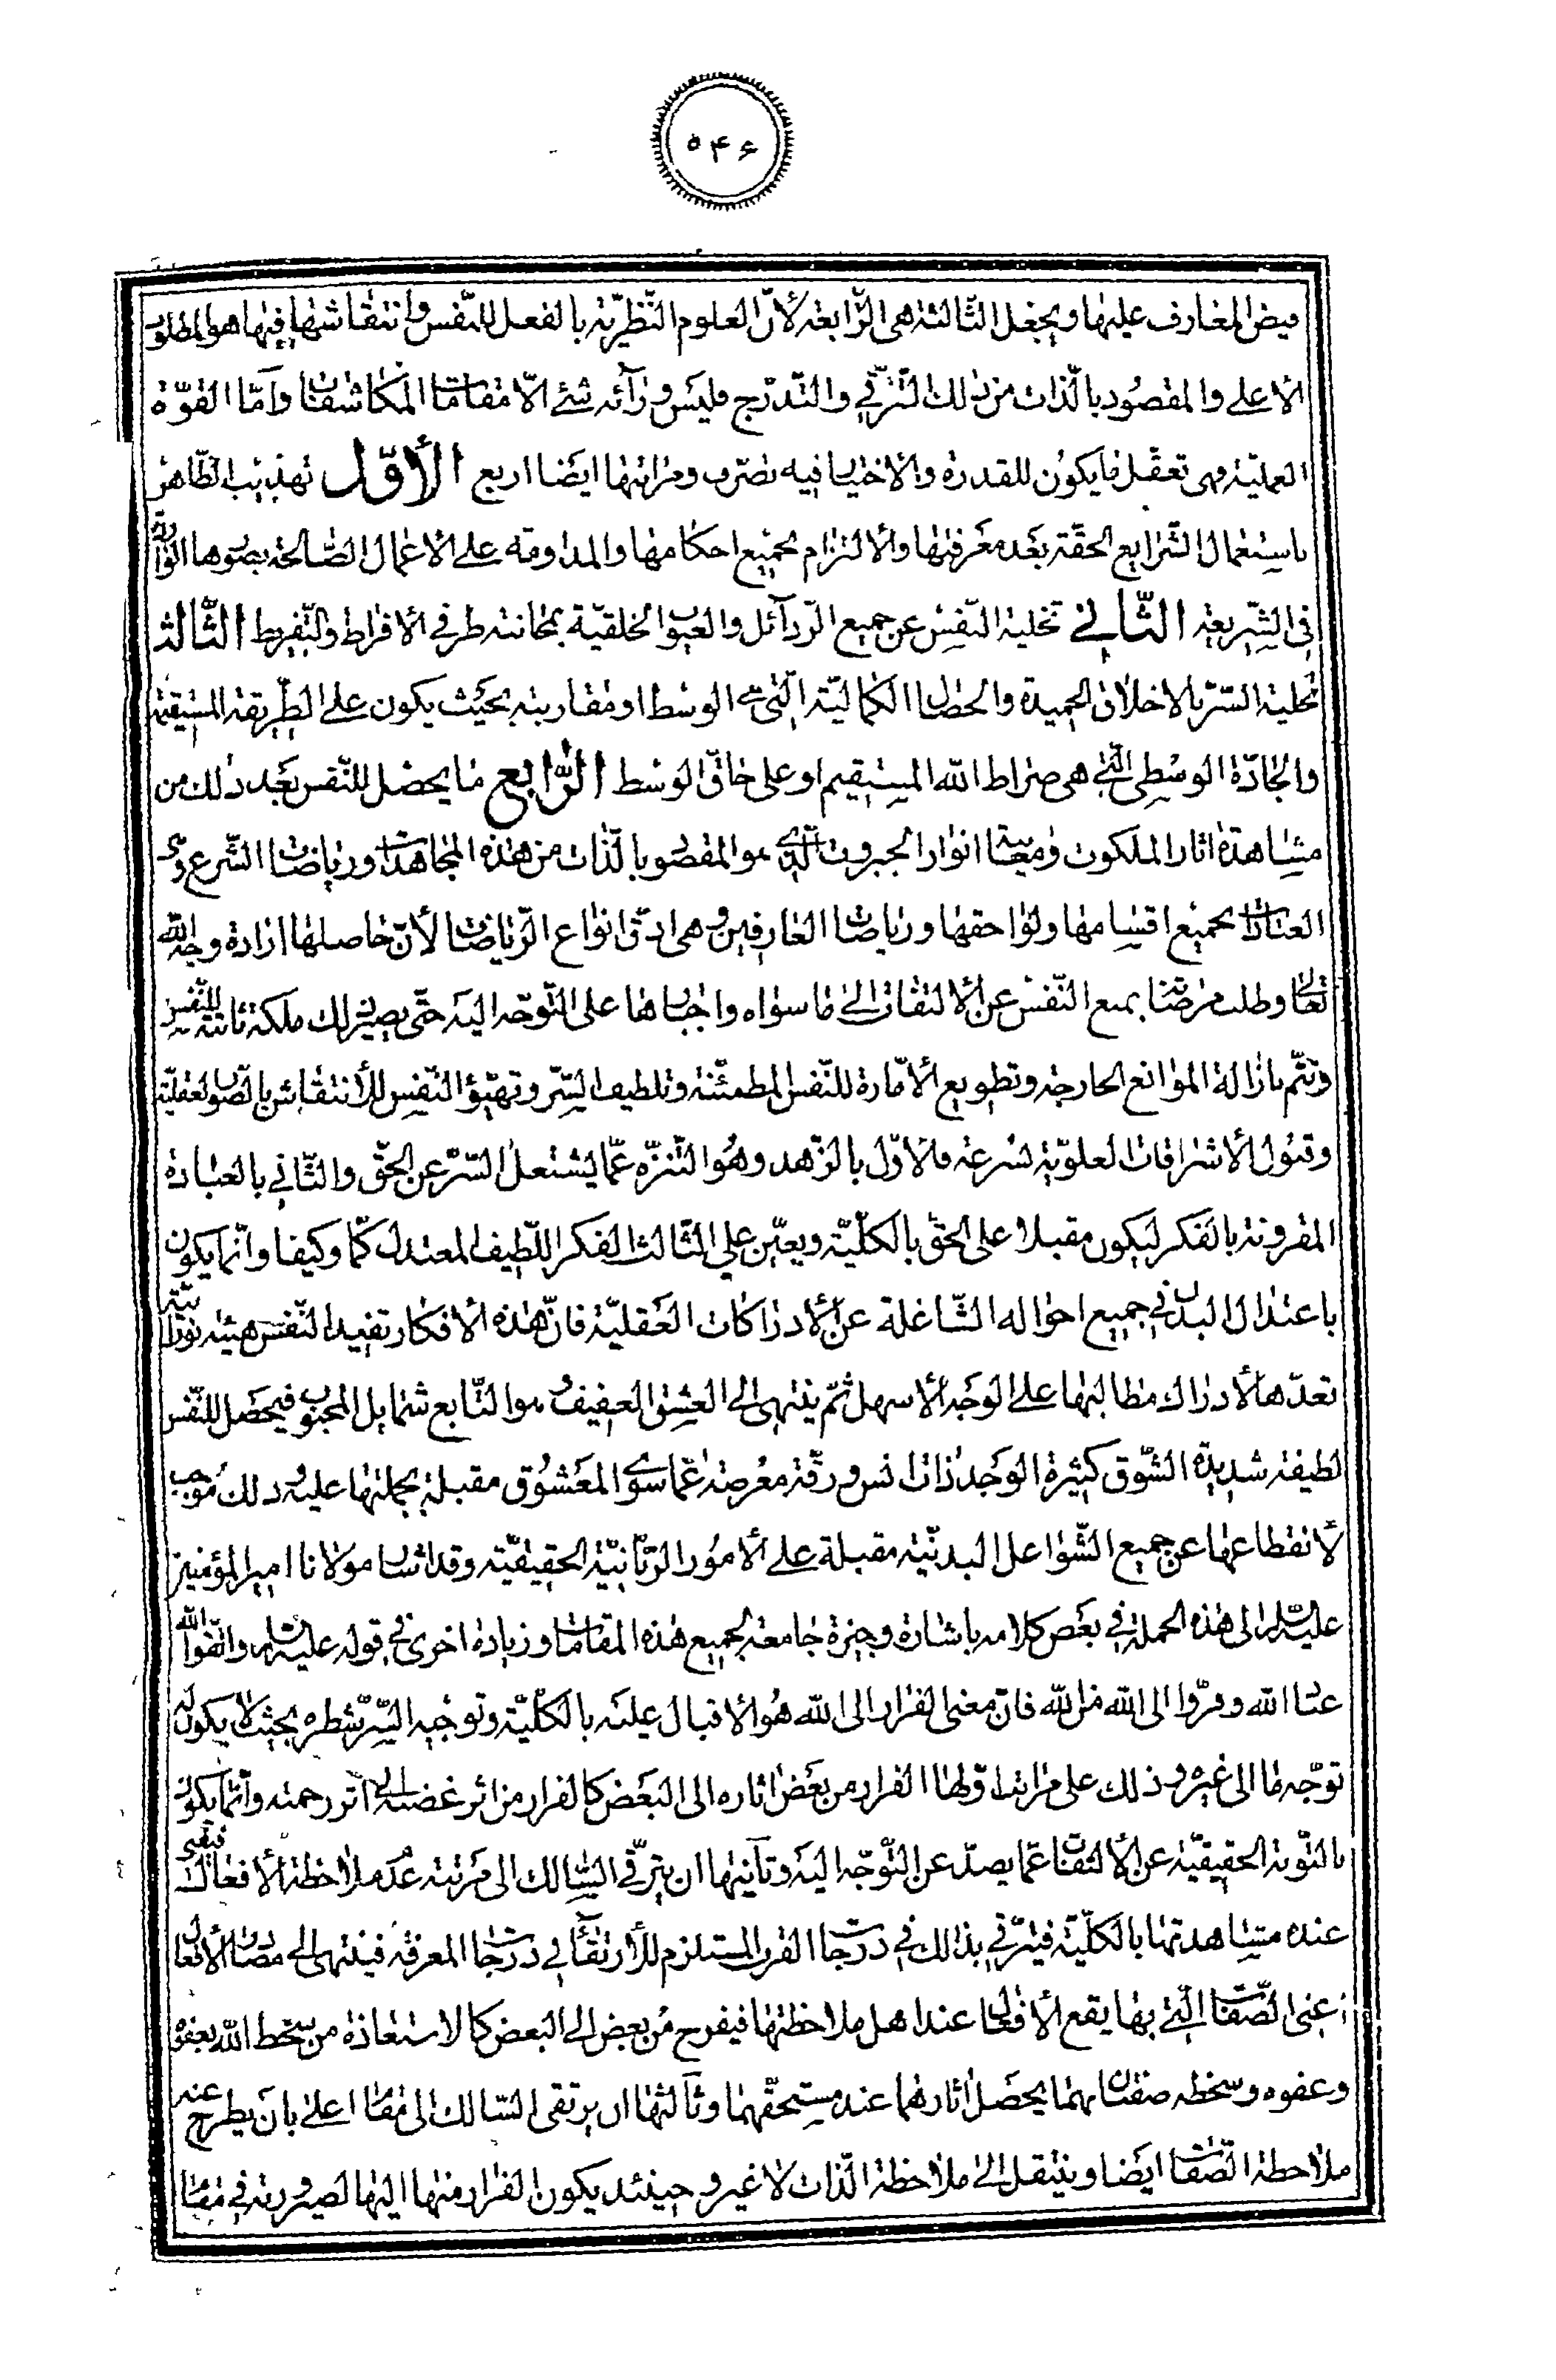 ۵۴۶
فيض المعارف عليها ويجعل الثالثة هى الرّابعة لأنّ العلوم النّظريّة بالفعل للنّفس وانتقاشها فيها هو المطلوب
الأعلى والمقصود بالّذات من ذلك التّرقّي والتّدرّج فليس ورآئه شئ الّا مقامات المكاشفات وأمّا القوّة
العمليّة وهى تعقّل ما يكون للقدرة والاختيار فيه تصرّف ومراتبها ايضا اربع الأوّل تهذيب الظّاهر
باستعمال الشّرايع الحقّة بعد معرفتها والالتزام بجميع احكامها والمداومة على الاعمال الصّالحة بصورها الواردة
فى الشّريعة الثّاني تخلية النّفس عن جميع الرّذآئل والعيوب الخلقيّة بمجانبته طرفي الافراط والتّفريط الثّالث
تحلية السّرّ بالاخلاق الحميدة والخصال الكماليّة الّتى هي الوسط او مقاربته بحيث يكون على الطّريقة المستقيمة
والجادّة الوسطى الّتي هى صراط الله المستقيم او على حاقّ الوسط الرّابع ما يحصل للنّفس بعد ذلك من
مشاهدة اثار الملكوت ومعاينة انوار الجبروت الّذي هو المقصود بالّذات من هذه المجاهدات ورياضات الشّرع وهى
العبادات بجميع اقسامها ولواحقها ورياضات العارفين وهى ادقّ انواع الرّياضات لأنّ حاصلها ارادة وجه الله
تعالى وطلب مرضاته بمنع النّفس عن الالتفات الى ما سواه واجبارها على التّوجّه اليه حتّى يصير ذلك ملكة ثابتة للنّفس
وتتمّ بازالة الموانع الخارجة وتطويع الأمّارة للنّفس المطمئنّة وتلطيف السّرّ وتهيّؤ النّفس للانتقاش بالصّور العقليّة
وقبول الاشراقات العلويّة بسرعة فالاوّل بالزّهد وهو التّنزّه عمّا يشتغل السّرّ عن الحقّ والثّاني بالعبادة
المقرونة بالفكر ليكون مقبلا على الحقّ بالكلّيّة ويعيّن على الثّالث الفكر اللّطيف المعتدل كمّا وكيفا وانّما يكون
باعتدال البدن في جميع احواله الشّاغلة عن الادراكات العقليّة فانّ هذه الافكار تفيد النّفس هيئة نورانيّة
تعدّها لادراك مطالبها على الوجه الاسهل ثمّ ينتهى الى العشق العفيف وهو التّابع شمايل المحبوب فيحصل للنّفس
لطيفة شديدة الشّوق كثيرة الوجد ذات انس ورقّة معرضة عمّا سوى المعشوق مقبلة بجملتها عليه وذلك موجب
لانقطاعها عن جميع الشّواغل البدنيّة مقبلة على الامور الرّبّانيّة الحقيقيّة وقد اشار مولانا امير المؤمنين
عليه السّلام الى هذه الجملة في بعض كلامه باشارة وجيزة جامعة لجميع هذه المقامات وزيادة اخرى في قوله عليه السلام واتّقوا الله
عباد الله وفرّوا الى الله من الله فانّ معنى الفرار الى الله هو الاقبال عليه بالكلّيّة وتوجيه السّرّ شطره بحيث لا يكون له
توجّه ما الى غيره وذلك على مراتب اوّلها الفرار من بعض اثاره الى البعض كالفرار من اثر غضبه الى اثر رحمته وانّما يكون
بالتّوبة الحقيقيّة عن الالتفات عمّا يصدّ عن التّوجّه اليه وثانيها ان يترقّى السّالك الى مرتبة عدم ملاحظة الأفعال فيبقى
عنده مشاهدتها بالكلّيّة فيترقّي بذلك في درجات القرب المستلزم للارتقآء في درجات المعرفة فينتهى الى مصادر الافعال
اعنى الصّفات الّتي بها يقع الافعال عند اهل ملاحظتها فيفرح من بعض الى البعض كالاستعاذة من سخط الله بعفوه
وعفوه وسخطه صفتان بهما يحصل اثارهما عند مستحقّهما وثالثها ان يرتقى السّالك الى مقام اعلى بان يطرح عنه
ملاحظة الصّفات ايضا وينتقل الى ملاحظة الذّات لا غير وحينئذ يكون الفرار منها اليها لصيرورته في مقام